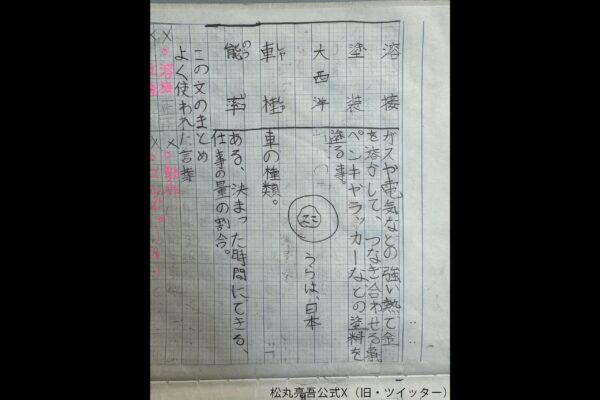 溶接
ガスや電気などの強い熱で金
を溶かして、つなぎ合わせる事
塗装
ペンキやラッカーなどの塗料を
塗る事。
大西洋
ここ
うらは、日本
車種
車の種類。
能率
ある、決まった時間にできる、
仕事の量の割合。
この文のまとめ
よく使われた言葉
松丸亮吾公式X（旧・ツイッター）